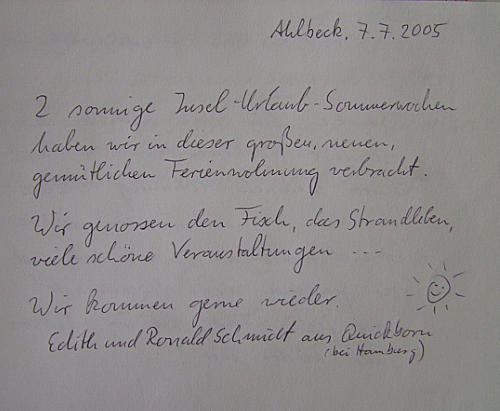 Ahlbeck, 7.7.2005
2 sonnige Insel-Urlaub-Sommerwochen
haben wir in dieser großen, neuen,
gemütlichen Ferienwohnung verbracht.
Wir genossen den Fisch, das Strandleben,
viele schöne Veranstaltungen ---
Wir kommen gerne wieder.
Edith und Ronald Schmidt aus Quickborn
(bei Hamburg)